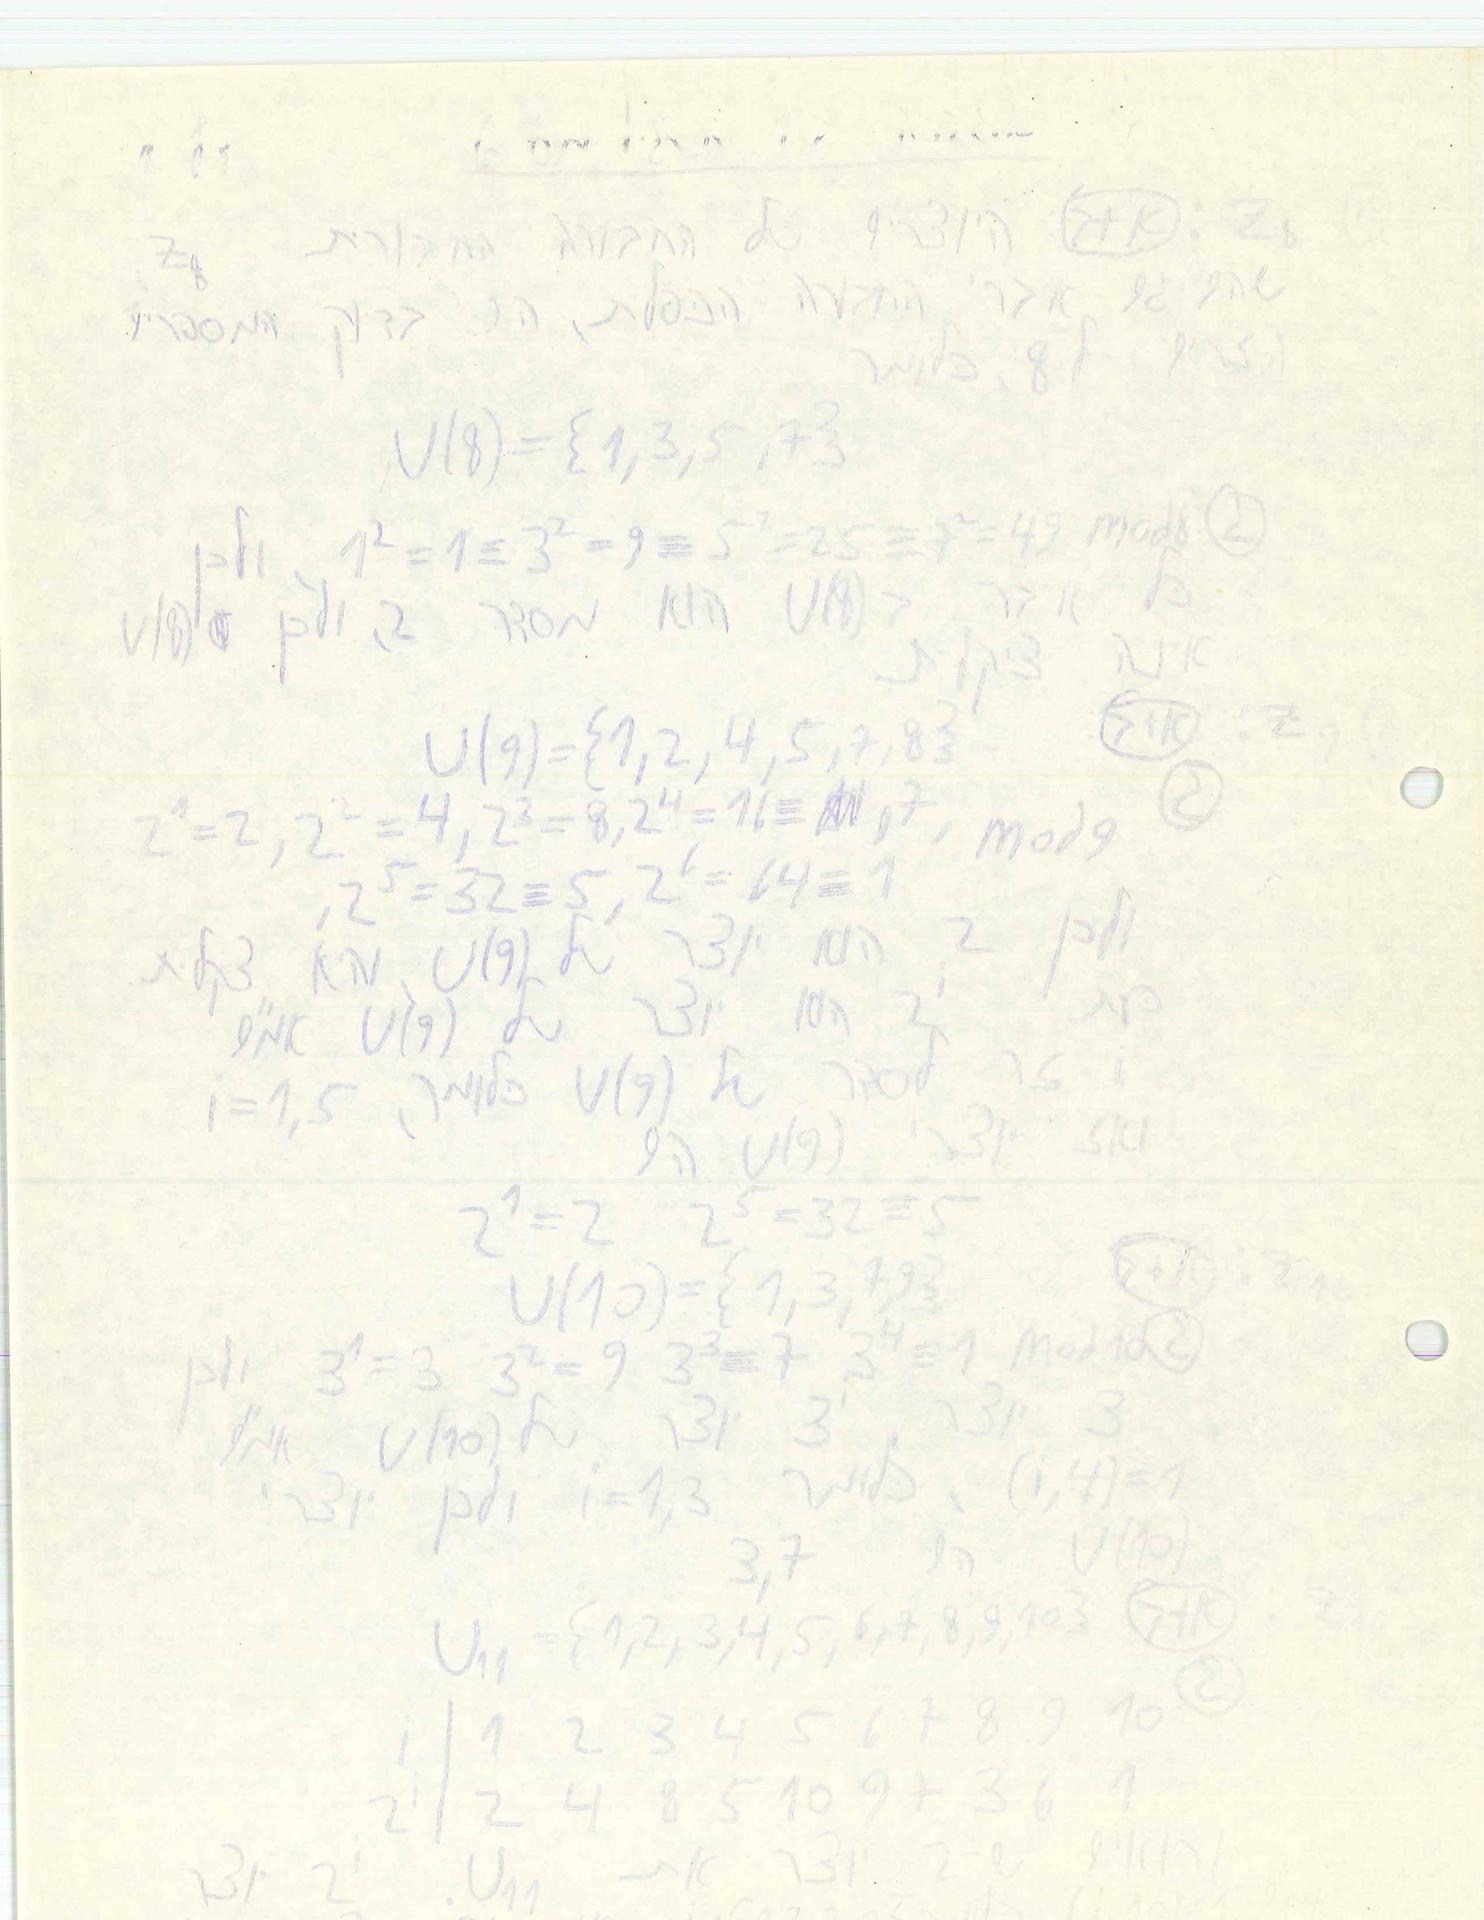 Z₈: א+ג היוצרים של החבורה החיבורית Z₈
שהם גם אברי החבורה הכפלית, הם בדיוק המספרים
הזרים ל 8, כלומר
U(8)={1,3,5,7}
② 1²=1≡3²=9≡5²=25≡7²=49 mod8 ולכן
כל אבר ב U(8) הוא מסדר 2, ולכן U(8)
אינה ציקלית
Z₉: א+ג U(9)={1,2,4,5,7,8}
② 2¹=2, 2²=4, 2³=8, 2⁴=16≡7, mod9
, 2⁵=32≡5, 2⁶=64≡1
ולכן 2 הוא יוצר של U(9), והיא צקלית
כעת 2ⁱ הוא יוצר של U(9) אמ"ם
i זר לסדר של U(9) כלומר, i=1,5
ואז יוצרי U(9) הם
2¹=2 2⁵=32≡5
Z₁₀: א+ג U(10)={1,3,7,9}
② 3¹=3 3²=9 3³≡7 3⁴≡1 mod10 ולכן
3 יוצר, 3ⁱ יוצר של U(10) אמ"ם
(i,4)=1, כלומר i=1,3 ולכן יוצרי
U(10) הם 3,7
Z א+ג U₁₁={1,2,3,4,5,6,7,8,9,10}
②
i | 1 2 3 4 5 6 7 8 9 10
2ⁱ | 2 4 8 5 10 9 7 3 6 1
ורואים ש-2 יוצר את U₁₁. 2ⁱ יוצר